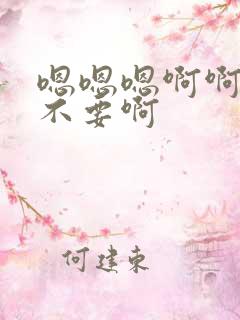 嗯嗯嗯啊啊
不要啊
何建东